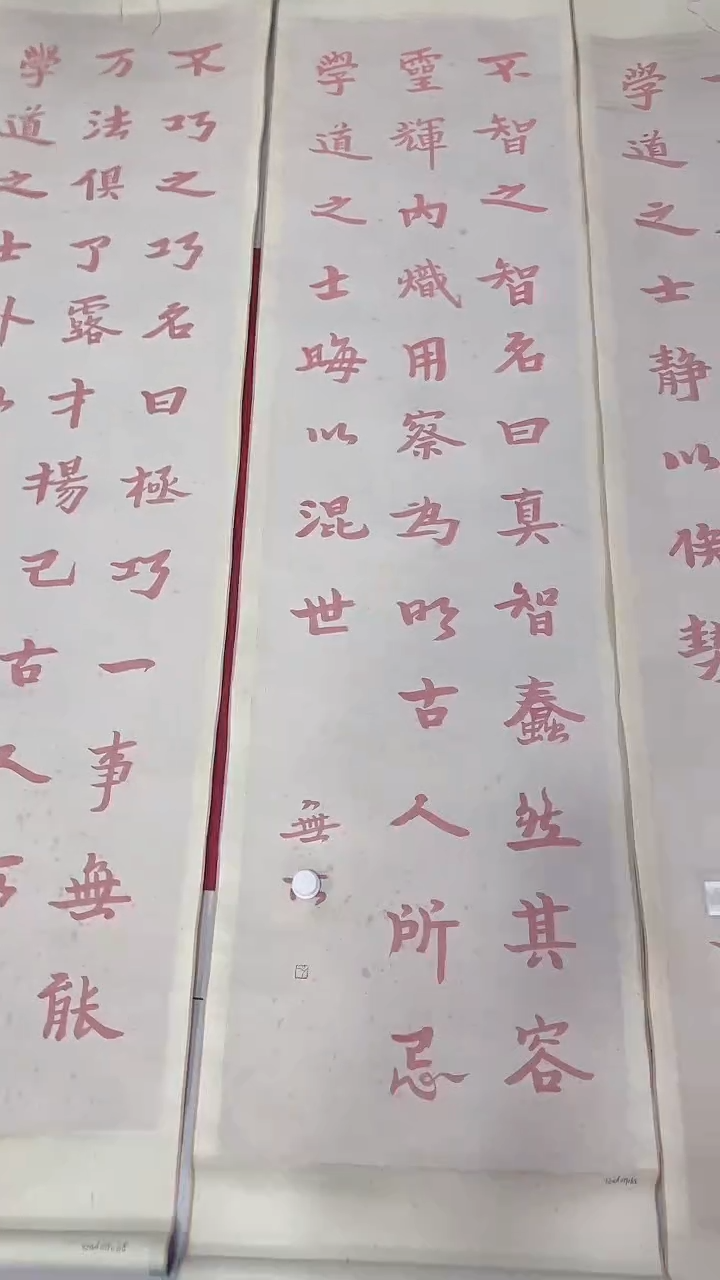 學道之士静以
不智之智名曰真智蠢然其容
靈輝内熾用察為明古人所忌
學道之士晦以混世
無
不巧之巧名曰極巧一事無能
万法俱了露才揚己古人
學道之士